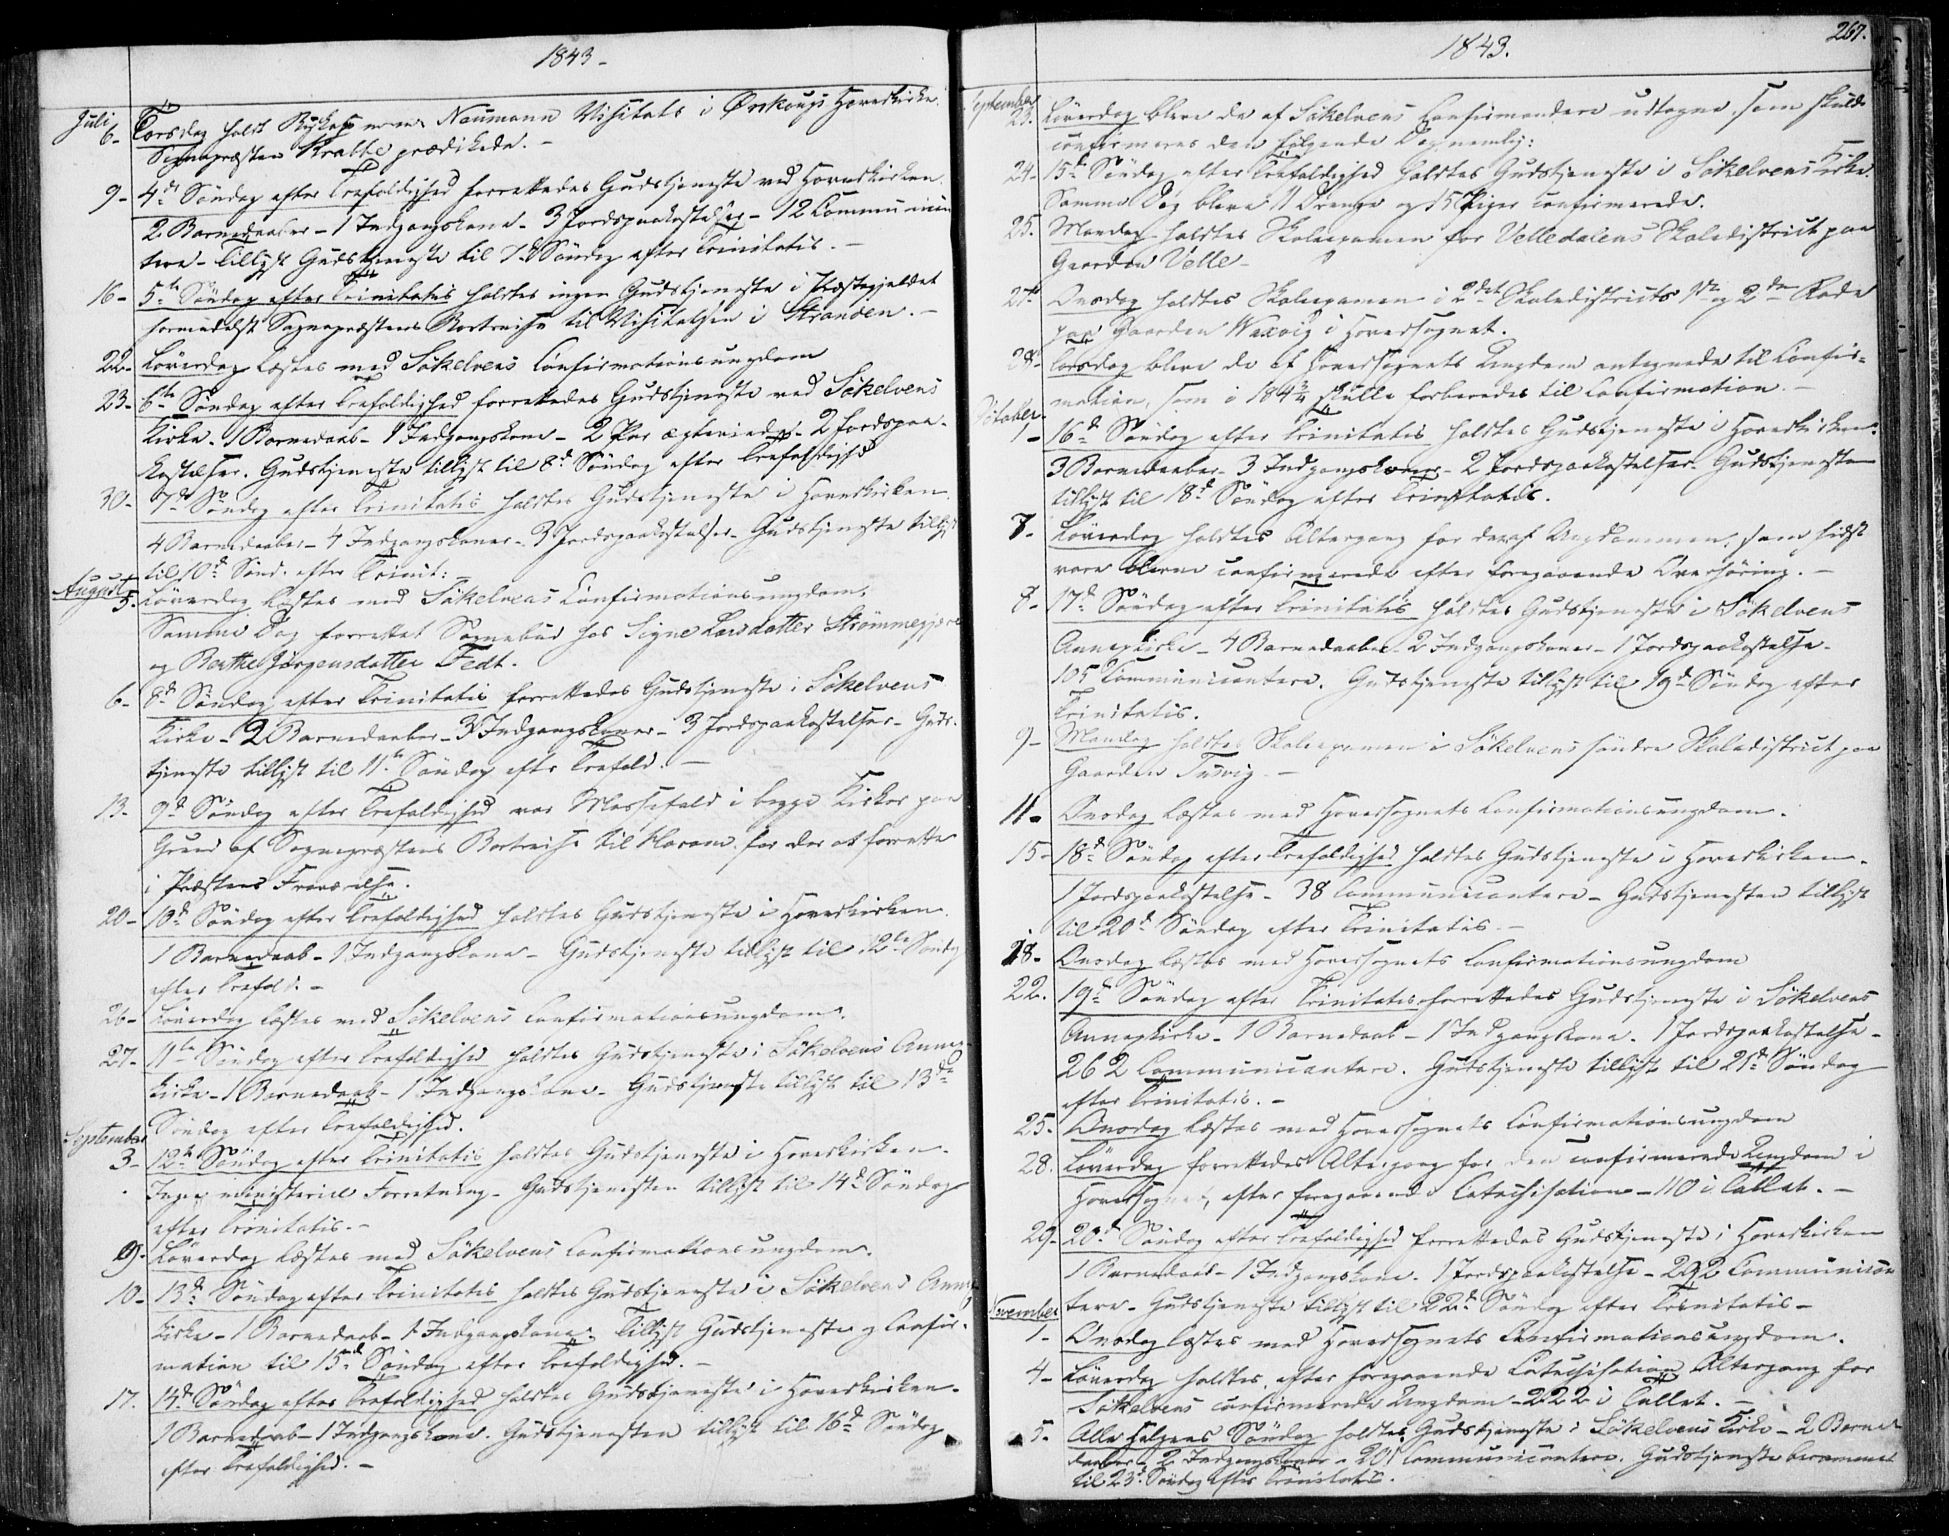 1843.
Juli
6. Torsdag holdt Biskop Neumann Visitats i Ørskougs Hovedkirke.
Sognepræsten Krabbe prædikede.
9. 4de Søndag efter Trefoldighed forrettedes Gudstjeneste ved Hovedkirken.
2 Barnedaaber - 1 Indgangskone - 3 Jordspaakastelser - 12 Communican
tere - Tillyst Gudstjeneste til 7de Søndag efter Trinitatis.
16. 5te Søndag efter Trinitatis holdtes ingen Gudstjeneste i Præstegjeldet
formedelst Sognepræstens Bortreise til Visitatsen i Stranden.
22. Løverdag læstes med Søkelvens Confirmationsungdom
23. 6te Søndag efter Trefoldighed forrettedes Gudstjeneste ved Søkelvens
Kirke. 1 Barnedaab - 1 Indgangskone - 2 Par ægteviede - 2 Jordspaa-
kastelser. Gudstjeneste tillyst til 8de Søndag efter Trefoldighed
30. 7de Søndag efter Trinitatis holdtes Gudstjeneste i Hovedkirken.
4 Barnedaaber - 4 Indgangskoner - 3 Jordspaakastelser - Gudstjeneste tillyst
til 10de Sønd. efter Trinit:
August
5. Løverdag læstes med Søkelvens Confirmationsungdom.
Samme Dag forrettet Sognebud hos Signe Larsdatter Strømmegjære
og Berthe Jørgensdatter Fedt.
6. 8de Søndag efter Trinitatis forrettedes Gudstjeneste i Søkelvens
Kirke - 2 Barnedaaber - 3 Indgangskoner - 3 Jordspaakastelser - Guds-
tjeneste tillyst til 11te Søndag efter Trefold.
13. 9de Søndag efter Trefoldighed var Messefald i begge Kirker paa
Grund af Sognepræstens Bortreise til Haram, for der at forrette
i Præstens Fraværelse.
20. 10de Søndag efter Trefoldighed holdtes Gudstjeneste i Hovedkirken.
1 Barnedaab - 1 Indgangskone - Gudstjeneste tillyst til 12te Søndag
efter Trefold.
26. Løverdag læstes med Søkelvens Confirmationsungdom.
27. 11te Søndag efter Trefoldighed holdtes Gudstjeneste i Søkelvens Annex-
kirke - 1 Barnedaab - 1 Indgangskone - Gudstjeneste tillyst til 13de
Søndag efter Trefoldighed.
September
3. 12te Søndag efter Trinitatis holdtes Gudstjeneste i Hovedkirken.
Ingen ministeriel Forretning - Gudstjenesten tillyst til 14de Søndag
efter Trinitatis.
9. Løverdag læstes med Søkelvens Confirmationsungdom.
10. 13de Søndag efter Trinitatis holdtes Gudstjeneste i Søkelvens Annex
kirke - 1 Barnedaab - 1 Indgangskone. Tillyst Gudstjeneste og Confir-
mation til 15de Søndag efter Trefoldighed.
17. 14de Søndag efter Trefoldighed holdtes Gudstjeneste i Hovedkirken.
1 Barnedaab - 1 Indgangskone. Gudstjenesten tillyst til 16de Søndag
efter Trefoldighed.
1843.
267.
September
23. Løverdag bleve de af Søkelvens Confirmandere udtagne, som skulde
confirmeres den følgende Dag nemlig:
24. 15de Søndag efter Trefoldighed holdtes Gudstjeneste i Søkelvens Kirke.
Samme Dag bleve 11 Drenge og 15 Piger confirmerede.
25. Mandag holdtes Skoleexamen for Velledalens Skoledistrict paa
Gaarden Velle
27de Onsdag holdtes Skoleexamen i 2det Skoledistricts 1ste og 2den Rode
paa Gaarden Waxvig i Hovedsognet.
28. Torsdag bleve de af Hovedsognets Ungdom antegnede til Confir-
mation, som i 1843/4 skulle forberedes til Confirmation.
October
1. 16de Søndag efter Trinitatis holdtes Gudstjeneste i Hovedkirken.
3 Barnedaaber - 3 Indgangskoner - 2 Jordspaakastelser. Gudstjenesten
tillyst til 18de Søndag efter Trinitatis.
7. Løverdag holdtes Altergang for deraf Ungdommen, som sidst
vare blevne confirmerede efter foregaaende Overhøring.
8. 17de Søndag efter Trinitatis holdtes Gudstjeneste i Søkelvens
Annexkirke - 4 Barnedaaber 2 Indgangskoner - 1 Jordspaakastelse -
105 Communicantere. Gudstjeneste tillyst til 19de Søndag efter
Trinitatis.
9. Mandag holdtes Skoleexamen i Søkelvens søndre Skoledistrict paa
Gaarden Tusvig.
11. Onsdag læstes med Hovedsognets Confirmationsungdom.
15. 18de Søndag efter Trefoldighed holdtes Gudstjeneste i Hovedkirken.
1 Jordspaakastelse - 38 Communicantere - Gudstjenesten tillyst
til 20de Søndag efter Trinitatis.
18. Onsdag læstes med Hovedsognets Confirmationsungdom
22. 19de Søndag efter Trinitatis forrettedes Gudstjeneste i Søkelvens
Annexkirke - 1 Barnedaab - 1 Indgangskone. 1 Jordspaakastelse -
262 Communicantere. Gudstjeneste tillyst til 21de Søndag
efter Trinitatis.
25. Onsdag læstes med Hovedsognets Confirmationsungdom
28. Løverdag forrettedes Altergang for den confirmerede Ungdom i
Hovedsognet, efter foregaaende Catechisation - 110 i Tallet.
29. 20de Søndag efter Trefoldighed forrettedes Gudstjeneste i Hovedkirken
1 Barnedaab - 1 Indgangskone - 1 Jordspaakastelse - 292 Communican
tere - Gudstjeneste tillyst til 22de Søndag efter Trinitatis -
November
1. Onsdag læstes med Hovedsognets Confirmationsungdom.
4. Løverdag holdtes, efter foregaaende Catechisation Altergang for
Søkelvens confirmerede Ungdom - 222 i Tallet.
5. Alle Helgens Søndag holdtes Gudstjeneste i Søkelvens Kirke - 2 Barne
daaber - 2 Indgangskoner - 201 Communicantere. Gudstjeneste berammet
til 23de Søndag efter Trinitatis.